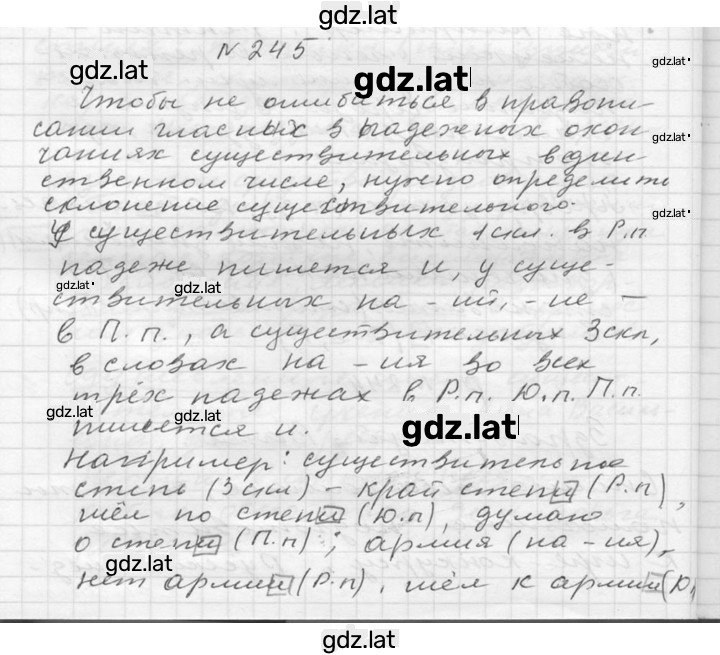 gdz.lat
№ 245
gdz.lat gdz.lat gdz.lat
Чтобы не ошибиться в правопи-
сании гласных в падежных окон
gdz.lat
чаниях существительных в един-
ственном числе, нужно определить
склонение существительного.
gdz.lat
У существительных 1 скл. в Р.п
падеже пишется и, у суще-
gdz.lat gdz.lat
ствительных на -ий, -ие –
в П.п., а существительных 3 скл,
в словах на -ия во всех
трёх падежах в Р.п. Ю.п. П.п.
gdz.lat gdz.lat
пишется и.
gdz.lat
Например: существительное
степь (3 скл) – край степи (Р.п),
шёл по степи (Ю.п), думаю
о степи (П.п); армия (на -ия),
gdz.lat
нет армии (Р.п), шёл к армии (Ю,
gdz.lat